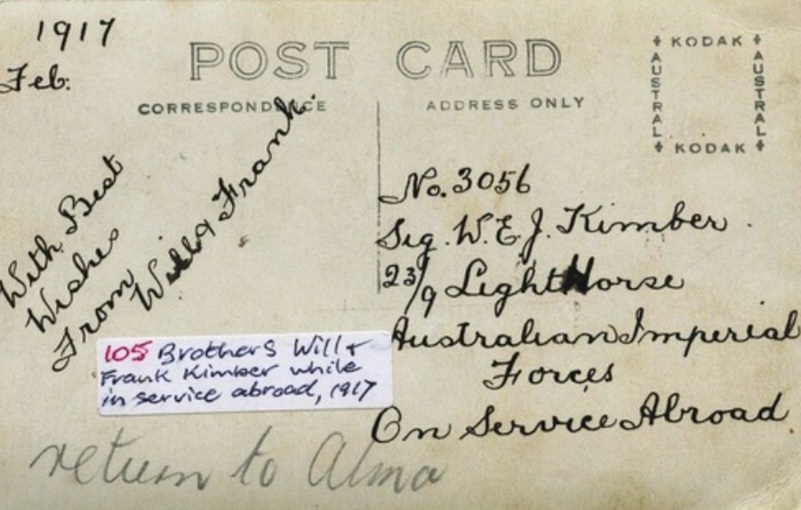 1917
Feb:
POST CARD
CORRESPONDENCE
ADDRESS ONLY
KODAK
AUSTRAL
AUSTRAL
KODAK
With Best
Wishes
From Will & Frank.
No. 3056
Sig. W. E. J. Kimber.
23/9 Light Horse
Australian Imperial
Forces
On Service Abroad.
105 Brothers Will +
Frank Kimber while
in service abroad, 1917
return to Alma